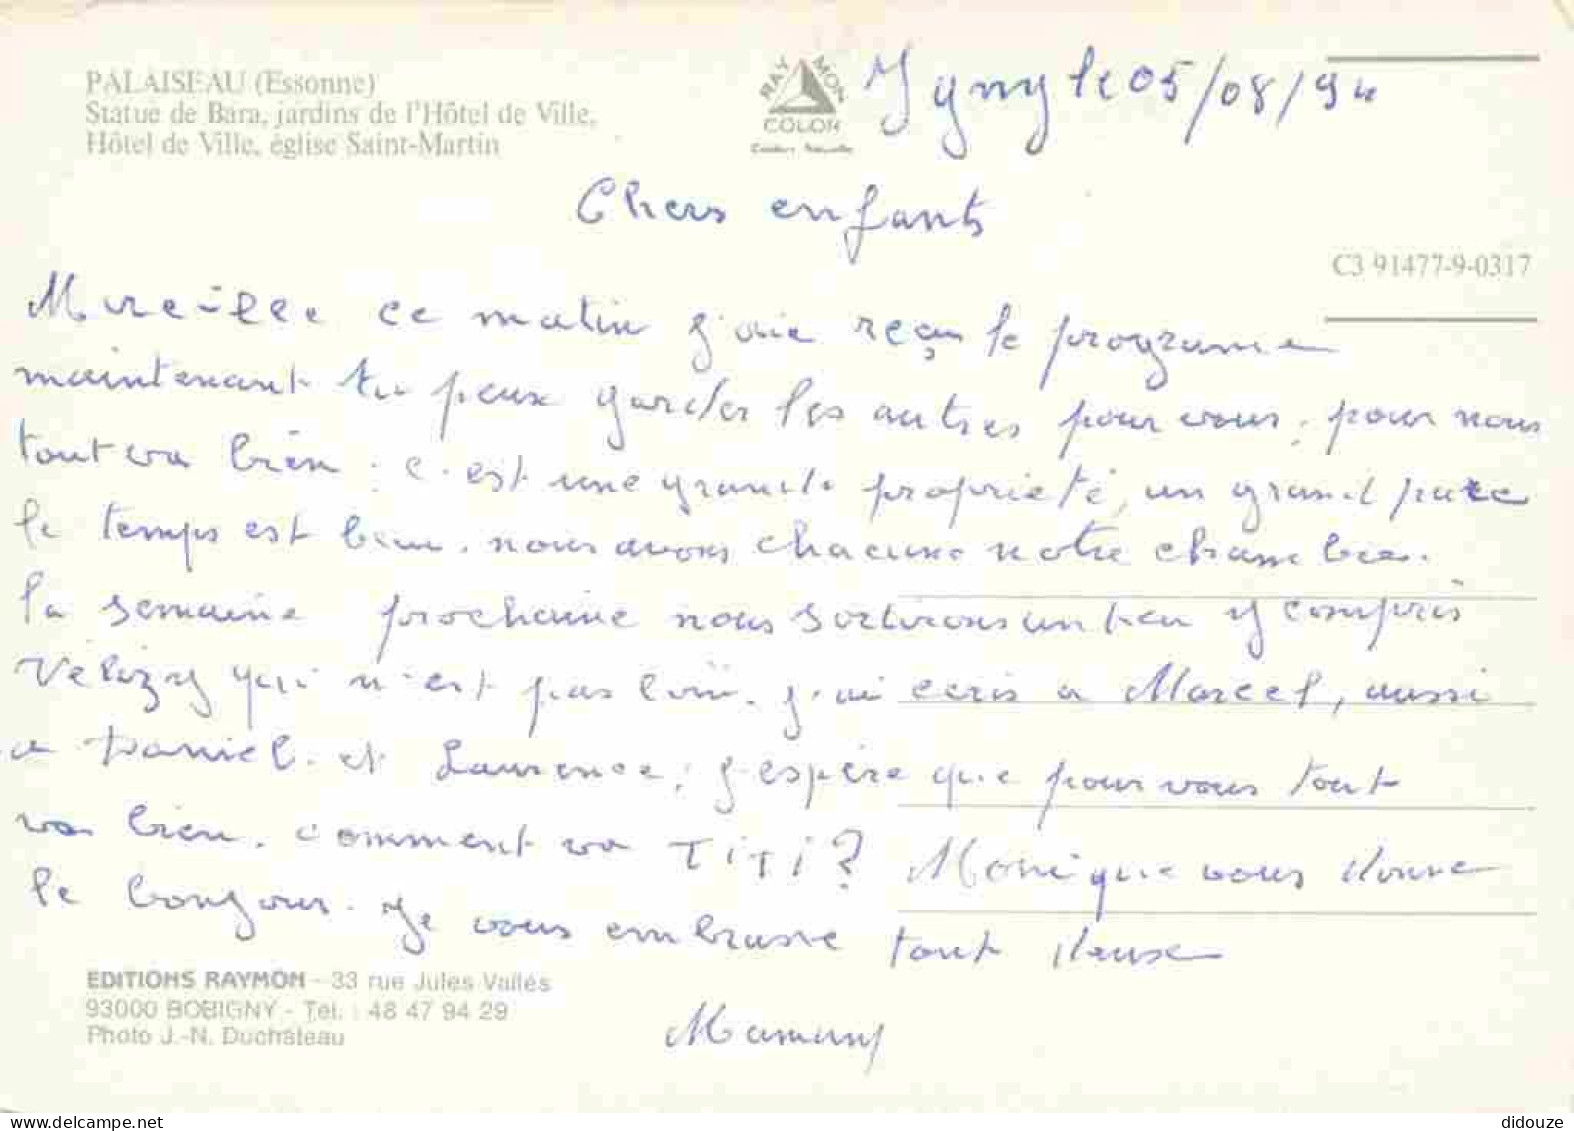 PALAISEAU (Essonne)
Statue de Bara, jardins de l'Hôtel de Ville,
Hôtel de Ville, église Saint-Martin
RAYMON
COLOR
Igny le 05/08/94
Chers enfants
C3 91477-9-0317
Mireille ce matin j'aie reçu le programe
maintenant tu peux garder les autres pour vous, pour nous
tout va bien : c'est une grande propriété, un grand parc
le temps est beau. nous avons chacune notre chambre.
la semaine prochaine nous sortirons un peu y compris
Vélizy qui n'est pas loin. j'ai ecris a Marcel, aussi
a Daniel. et Laurence, j'espère que pour vous tout
va bien. comment va TiTi? Monique vous donne
le bonjour. Je vous embrasse tout deux
EDITIONS RAYMON - 33 rue Jules Vallès
93000 BOBIGNY - Tél. : 48 47 94 29
Photo J.-N. Duchâteau
Mamany
didouze